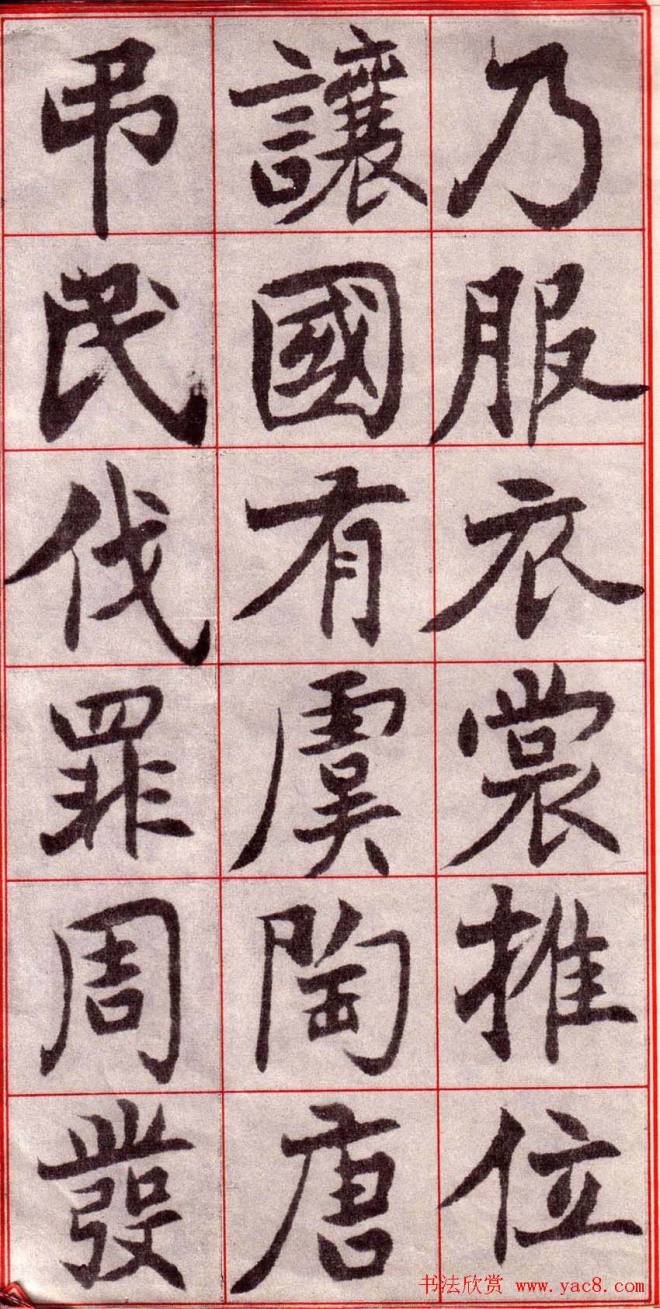 乃服衣裳推位
讓國有虞陶唐
弔民伐罪周發
书法欣赏 www.yac8.com